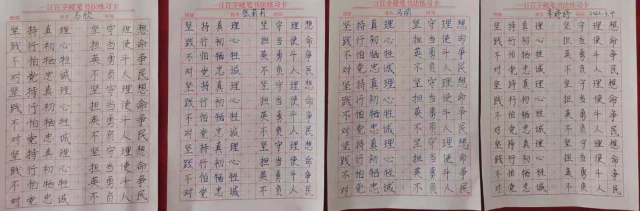 一日百字硬笔书法练习卡
坚持真理 坚守理想
践行初心 担当使命
不怕牺牲 英勇斗争
对党忠诚 不负人民
坚持真理 坚守理想
践行初心 担当使命
不怕牺牲 英勇斗争
对党忠诚 不负人民
坚持真理 坚守理想
践行初心 担当使命
不怕牺牲 英勇斗争
对党忠诚 不负人民
一日百字硬笔书法练习卡
坚持真理 坚守理想
践行初心 担当使命
不怕牺牲 英勇斗争
对党忠诚 不负人民
坚持真理 坚守理想
践行初心 担当使命
不怕牺牲 英勇斗争
对党忠诚 不负人民
坚持真理 坚守理想
践行初心 担当使命
不怕牺牲 英勇斗争
对党忠诚 不负人民
一日百字硬笔书法练习卡
坚持真理 坚守理想
践行初心 担当使命
不怕牺牲 英勇斗争
对党忠诚 不负人民
坚持真理 坚守理想
践行初心 担当使命
不怕牺牲 英勇斗争
对党忠诚 不负人民
坚持真理 坚守理想
践行初心 担当使命
不怕牺牲 英勇斗争
对党忠诚 不负人民
一日百字硬笔书法练习卡
2022.3.4
坚持真理 坚守理想
践行初心 担当使命
不怕牺牲 英勇斗争
对党忠诚 不负人民
坚持真理 坚守理想
践行初心 担当使命
不怕牺牲 英勇斗争
对党忠诚 不负人民
坚持真理 坚守理想
践行初心 担当使命
不怕牺牲 英勇斗争
对党忠诚 不负人民